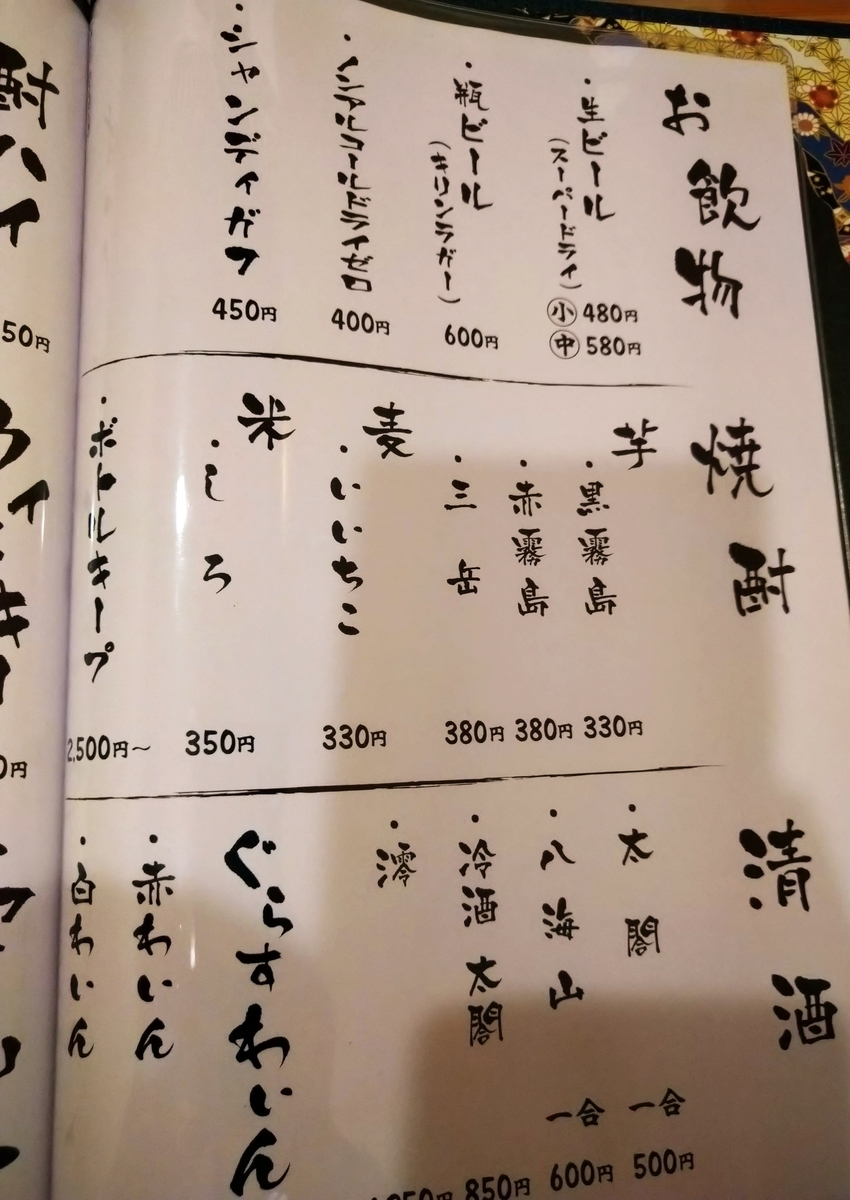 お飲物
・生ビール
(スーパードライ)
小 480円
中 580円
・瓶ビール
(キリンラガー)
600円
・ノンアルコールドライゼロ
400円
・シャンディガフ
450円
焼酎
芋
・黒霧島
330円
・赤霧島
380円
・三岳
380円
麦
・いいちこ
330円
米
・しろ
350円
・ボトルキープ
2,500円～
清酒
・太閤
一合
500円
・八海山
一合
600円
・冷酒太閤
850円
・澪
ぐらすわいん
・赤わいん
・白わいん
酎ハイ
50円